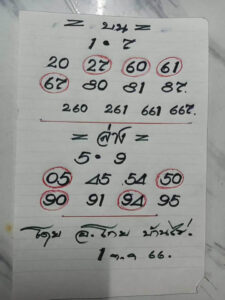 = บน =
1 • 7
20 27 60 61
67 80 81 87
260 261 661 667
= ล่าง =
5 • 9
05 45 54 50
90 91 94 95
โดย อ.โกย บ้านไร่.
1 ต.ค 66.